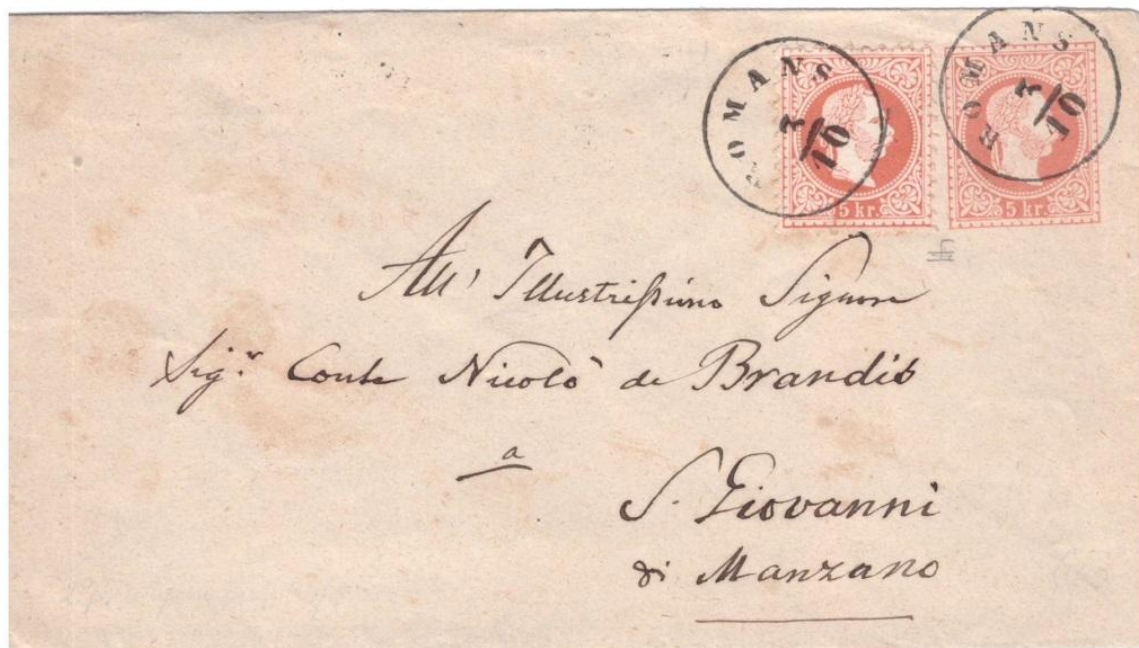 ROMANS
7/10
ROMANS
7/10
5 kr.
5 kr.
All' Illustrissimo Signore
Sigr. Conte Nicolò de Brandis
a
S. Giovanni
di Manzano